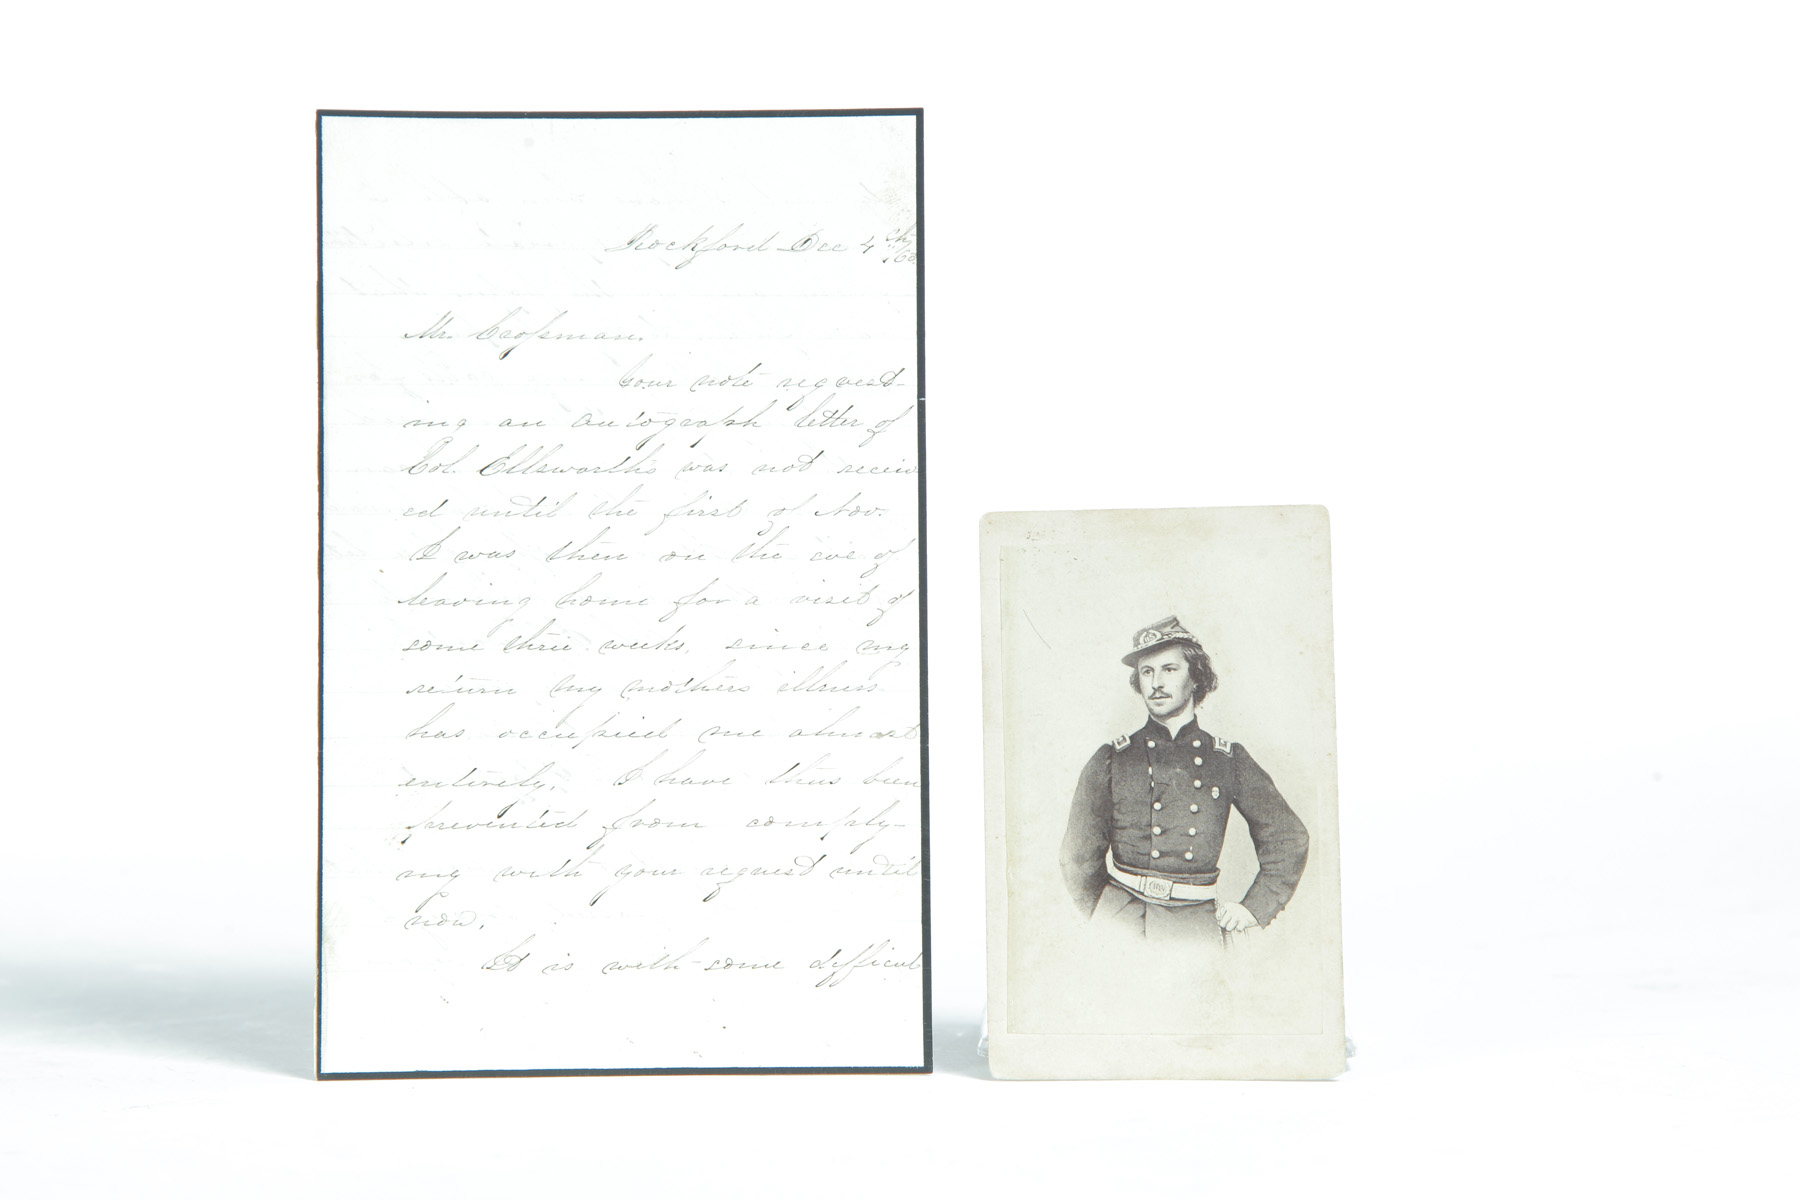 Rockford Dec 4th
Mr. Crossman.
Your note request-
ing an autograph letter of
Col. Ellsworth's was not receiv
ed until the first of Nov.
I was then on the eve of
leaving home for a visit of
some three weeks, since my
return my mothers illness
has occupied me almost
entirely. I have thus been
prevented from comply-
ing with your request until
now.
It is with some difficul